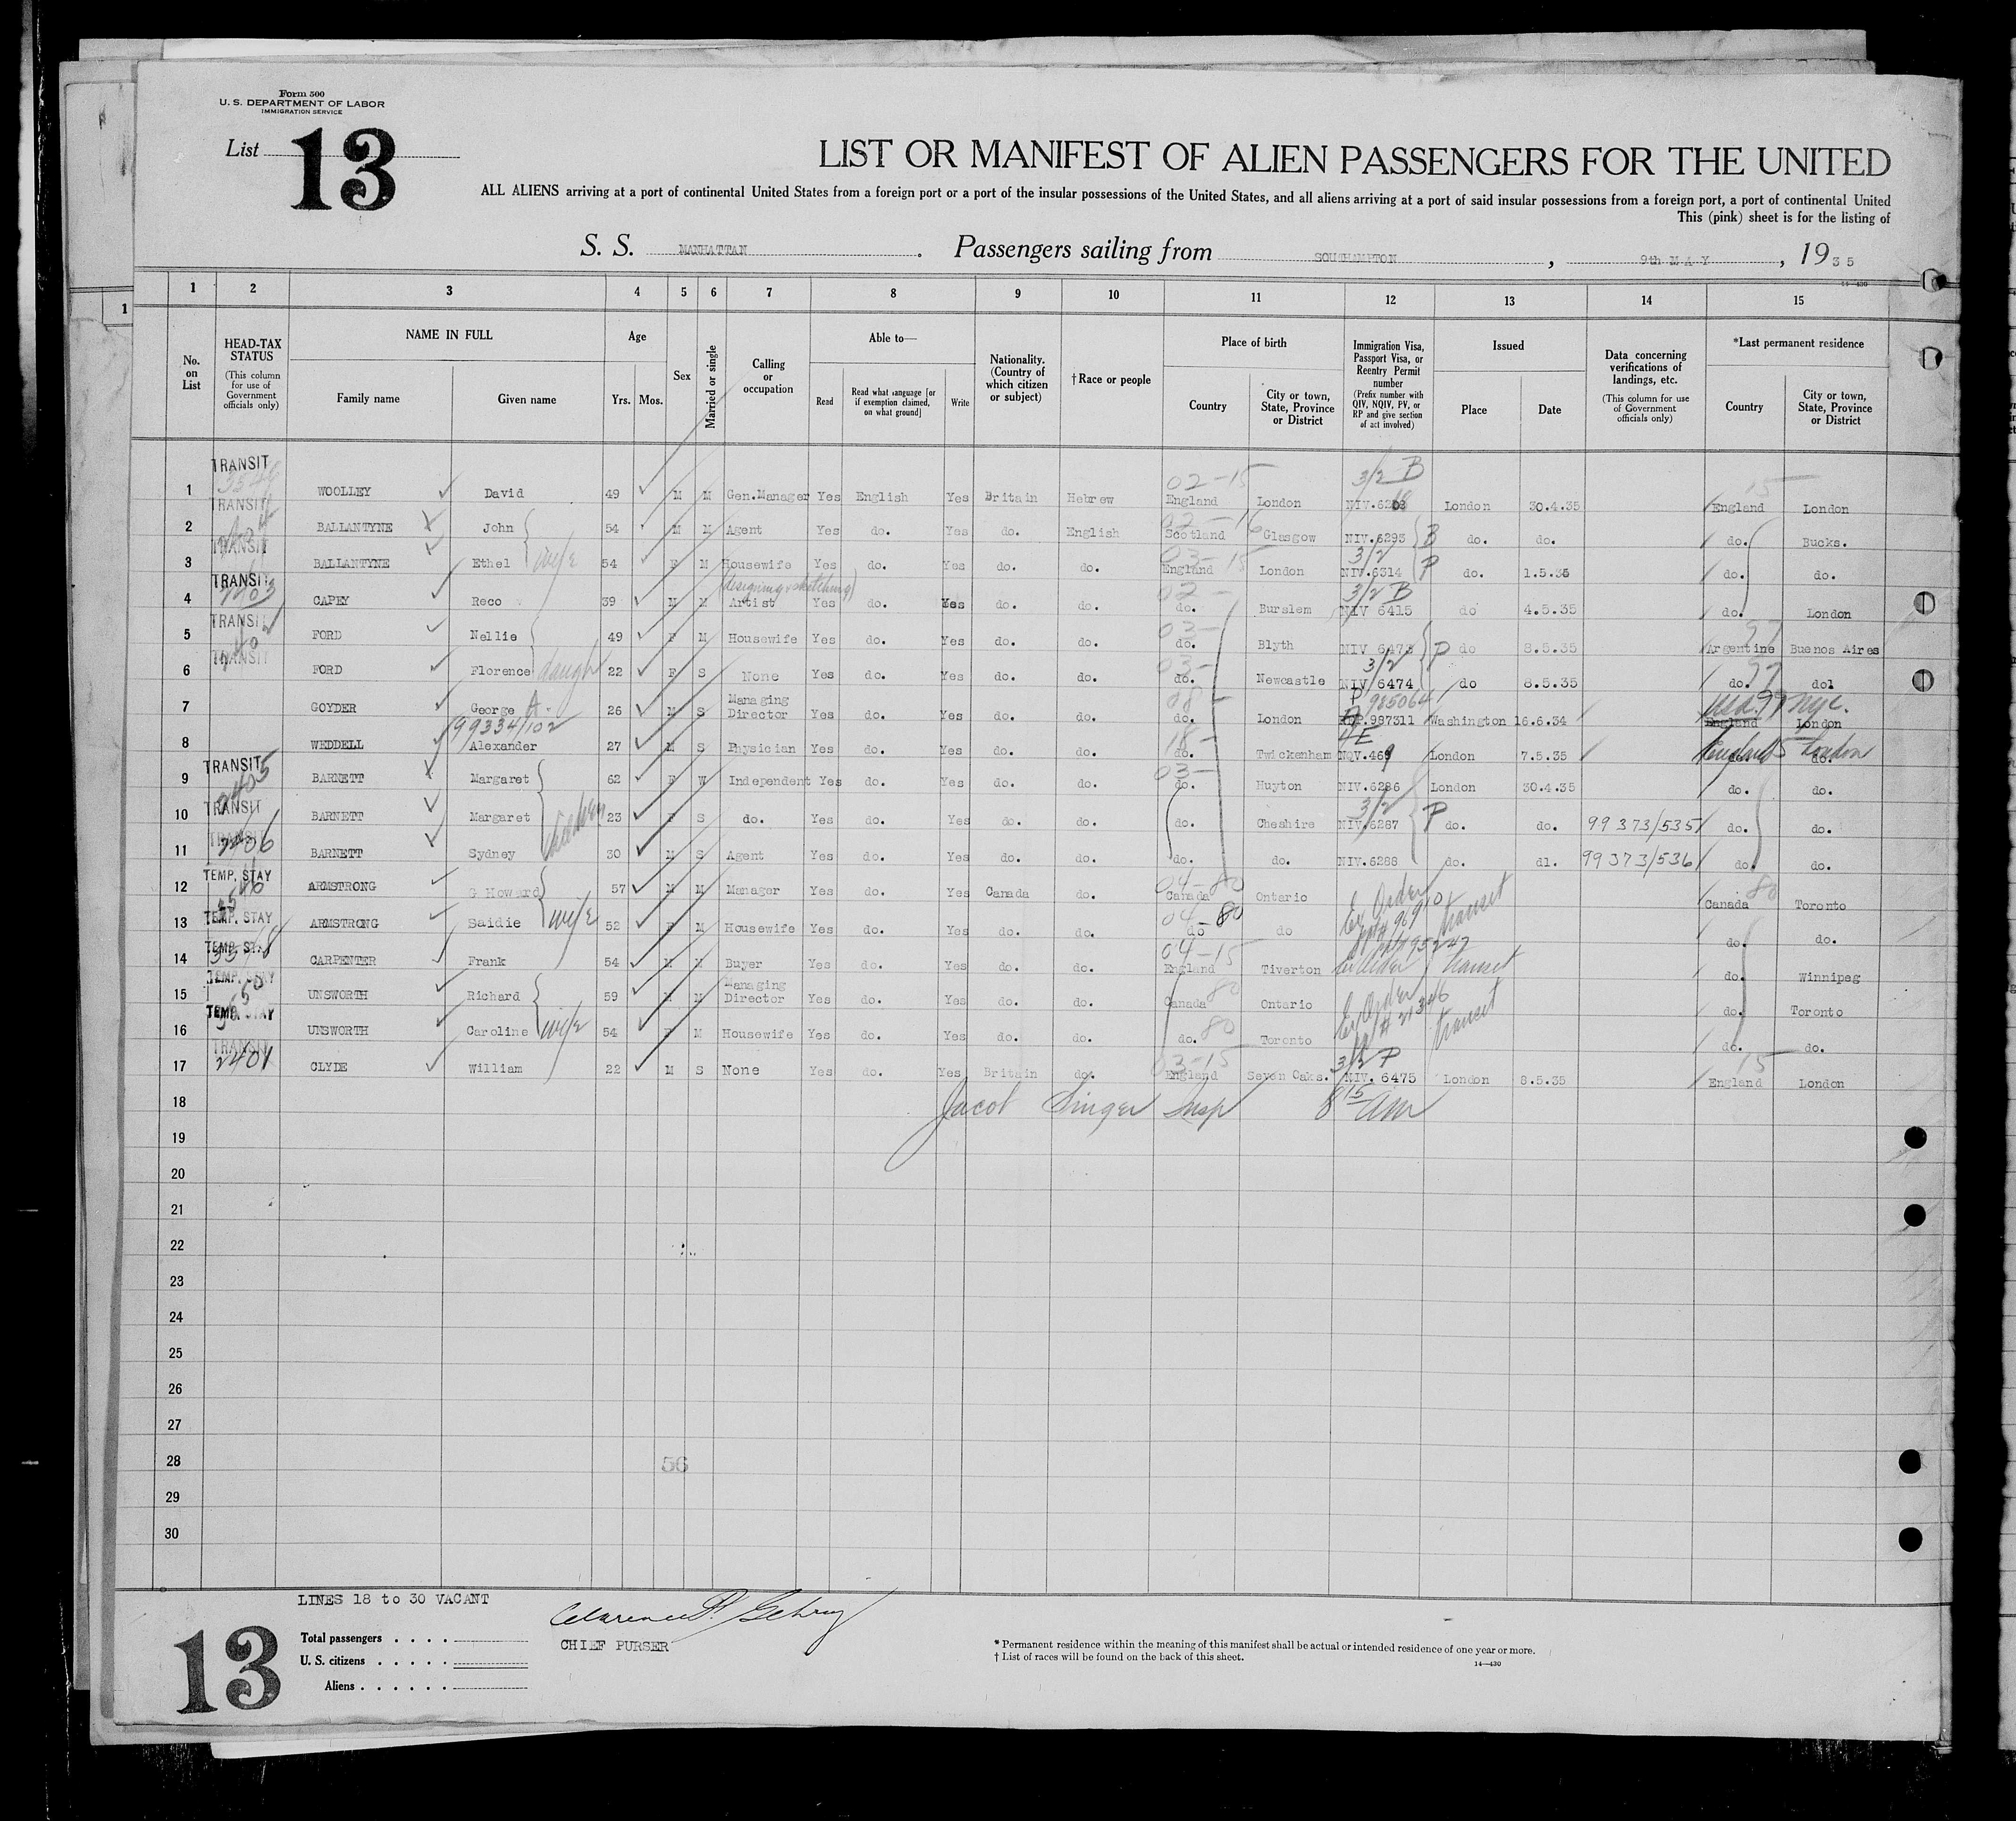 Form 500
U. S. DEPARTMENT OF LABOR
IMMIGRATION SERVICE
List 13
LIST OR MANIFEST OF ALIEN PASSENGERS FOR THE UNITED
ALL ALIENS arriving at a port of continental United States from a foreign port or a port of the insular possessions of the United States, and all aliens arriving at a port of said insular possessions from a foreign port, a port of continental United
This (pink) sheet is for the listing of
S. S. MANHATTAN. Passengers sailing from SOUTHAMPTON, 9th MAY, 1935
14—430
1 2 3 4 5 6 7 8 9 10 11 12 13 14 15
No. on List
HEAD-TAX STATUS (This column for use of Government officials only)
NAME IN FULL
Family name Given name
Age
Yrs. Mos.
Sex
Married or single
Calling or occupation
Able to—
Read
Read what language [or if exemption claimed, on what ground]
Write
Nationality. (Country of which citizen or subject)
†Race or people
Place of birth
Country
City or town, State, Province or District
Immigration Visa, Passport Visa, or Reentry Permit number (Prefix number with QIV, NQIV, PV, or RP and give section of act involved)
Issued
Place Date
Data concerning verifications of landings, etc. (This column for use of Government officials only)
*Last permanent residence
Country
City or town, State, Province or District
TRANSIT 02-15 3/2 B 15
1 WOOLLEY David 49 M M Gen.Manager Yes English Yes Britain Hebrew England London London 30.4.35 England London
TRANSIT
2 BALLANTYNE John 54 M M Agent Yes do. Yes do. English Scotland Glasgow NIV.6293 B do. do. do. Bucks.
TRANSIT wife 03-15 3/2
3 BALLANTYNE Ethel 54 F M Housewife Yes do. Yes do. do. England London NIV.6314 P do. 1.5.35 do. do.
TRANSIT 2403 (designing & sketching) 02- 3/2 B
4 CAPEY Reco 39 M M Artist Yes do. Yes do. do. do. Burslem NIV 6415 do 4.5.35 do. London
TRANSIT 03- 97
5 FORD Nellie 49 F M Housewife Yes do. Yes do. do. do. Blyth NIV 6473 P do 8.5.35 Argentine Buenos Aires
TRANSIT daugh 03- 3/2 97
6 FORD Florence 22 F S None Yes do. Yes do. do. do. Newcastle NIV 6474 do 8.5.35 do. dol
08- P 985064 99 NYC.
7 GOYDER George A. 26 M S Managing Director Yes do. Yes do. do. do. London 987311 Washington 16.6.34 England London
99334/102 18- 4E England London
8 WEDDELL Alexander 27 M S Physician Yes do. Yes do. do. do. Twickenham NQV.469 London 7.5.35 do.
TRANSIT 2405 03-
9 BARNETT Margaret 62 F W Independent Yes do. Yes do. do. do. Huyton NIV.6286 London 30.4.35 do. do.
TRANSIT 3/2
10 BARNETT Margaret 23 F S do. Yes do. Yes do. do. do. Cheshire NIV.6287 P do. do. 99373/535 do. do.
TRANSIT 2406 children
11 BARNETT Sydney 30 M S Agent Yes do. Yes do. do. do. do. NIV.6288 do. dl. 99373/536 do. do.
TEMP. STAY 04-80 Ex Order transit 80
12 ARMSTRONG G Howard 57 M M Manager Yes do. Yes Canada do. Canada Ontario Canada Toronto
TEMP. STAY wife 04-80
13 ARMSTRONG Saidie 52 F M Housewife Yes do. Yes do. do. do do do. do.
TEMP. STAY 04-15 Ex Order transit
14 CARPENTER Frank 54 M M Buyer Yes do. Yes do. do. England Tiverton do. Winnipeg
TEMP. STAY 80 Ex Order transit
15 UNSWORTH Richard 59 M M Managing Director Yes do. Yes do. do. Canada Ontario do. Toronto
TEMP. STAY wife 80
16 UNSWORTH Caroline 54 F M Housewife Yes do. Yes do. do. do. Toronto do. do.
TRANSIT 2401 03-15 3/2 P 15
17 CLYDE William 22 M S None Yes do. Yes Britain do. England Seven Oaks. NIV. 6475 London 8.5.35 England London
18 Jacob Singer Insp 8 15 am
19
20
21
22
23
24
25
26
27
28 56
29
30
LINES 18 to 30 VACANT
13
Total passengers
U. S. citizens
Aliens
Clarence P. Gehrig
CHIEF PURSER
* Permanent residence within the meaning of this manifest shall be actual or intended residence of one year or more.
† List of races will be found on the back of this sheet.
14—430